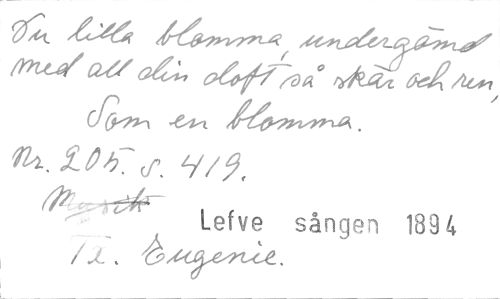 Du lilla blomma, undergömd
med all din doft så skär och ren,
Som en blomma.
Nr. 205. s. 419.
Musik
Lefve sången 1894
Tx. Eugenie.